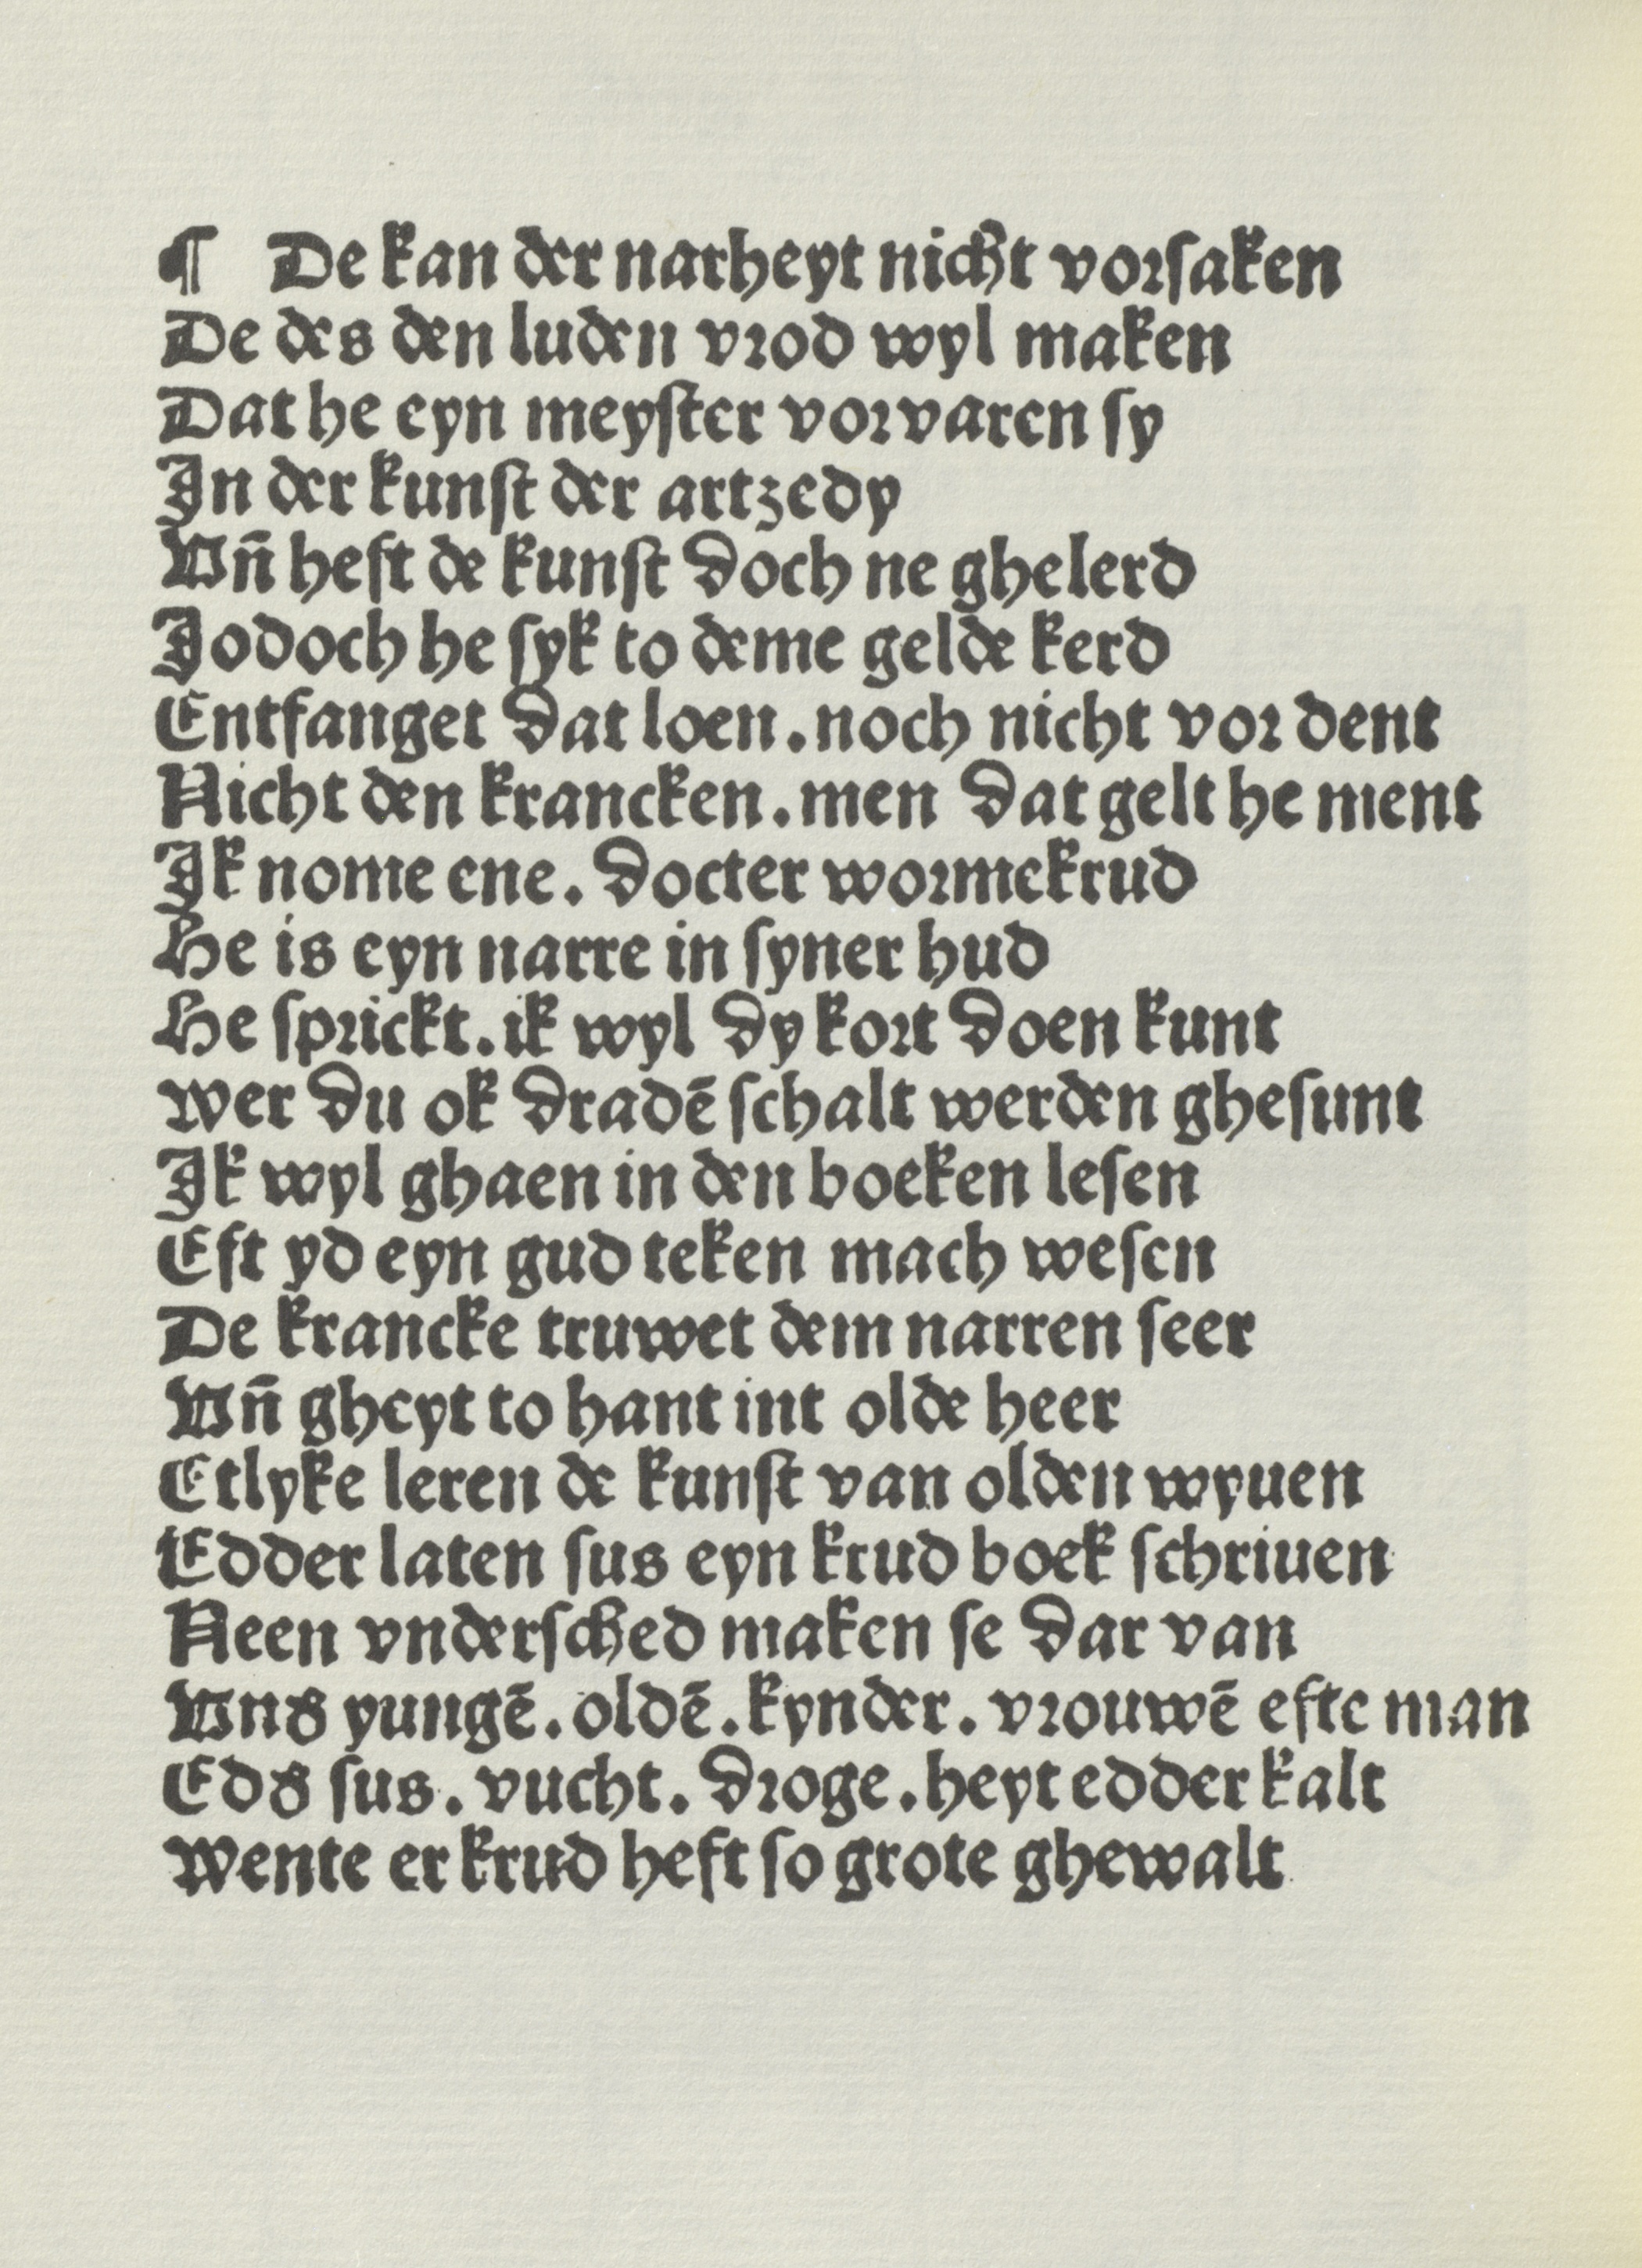 ¶ De kan der narheyt nicht vorsaken
De des den luden vrod wyl maken
Dat he eyn meyster vorvaren sy
In der kunst der artzedy
Vn̄ heft de kunst doch ne ghelerd
Jodoch he syk to deme gelde kerd
Entfanget dat loen. noch nicht vor dent
Nicht den krancken. men dat gelt he ment
Ik nome ene. docter wormekrud
He is eyn narre in syner hud
He sprickt. ik wyl dy kort doen kunt
wer du ok dradē schalt werden ghesunt
Ik wyl ghaen in den boeken lesen
Eft yd eyn gud teken mach wesen
De krancke truwet dem narren seer
Vn̄ gheyt to hant int olde heer
Etlyke leren de kunst van olden wyuen
Edder laten sus eyn krud boek schriuen
Neen vndersched maken se dar van
Vnd' yungē. oldē. kynder. vrouwē efte man
Ed' sus. vucht. droge. heyt edder kalt
Wente er krud heft so grote ghewalt